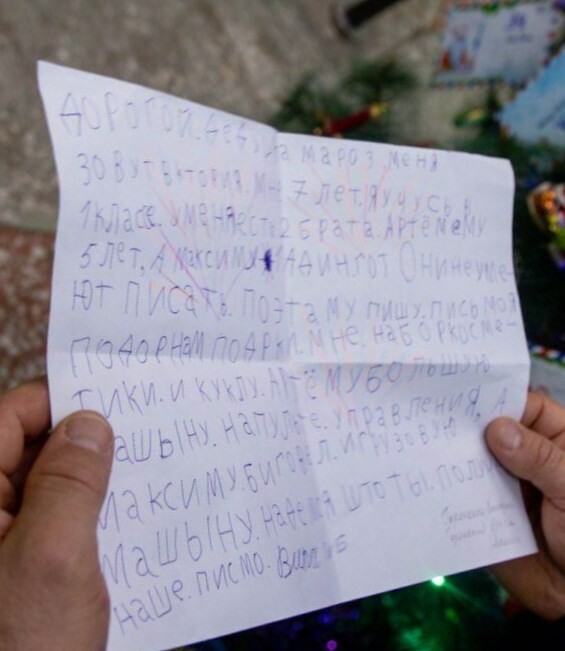 ДОРОГОЙ. ДЕДУШКА МАРОЗ МЕНЯ
ЗОВУТ ВКТОРИЯ. МНЕ 7 ЛЕТ. Я УЧУСЬ В
1 КЛАСЕ. У МЕНЯ ЕСТЬ 2 БРАТА. АРТЁМЕМУ
5 ЛЕТ, А МАКСИМУ АДИН ГОТ ОНИ НЕ УМЕ-
ЮТ ПИСАТЬ. ПОЭТАМУ ПИШУ. ПИСЬМО Я
ПОДОРИ НАМ ПОДРКИ. МНЕ. НАБОР КОСМЕ-
ТИКИ. И КУКЛУ. АРТЁМУ БОЛЬШУЮ
МАШЫНУ. НАПУЛЬТЕ. УПРАВЛЕНИЯ, А
МАКСИМУ. БИГОВЕЛ. И ГРУЗОВУЮ
МАШЫНУ. НАДЕМСЯ ШТО ТЫ.
НАШЕ. ПИСМО.